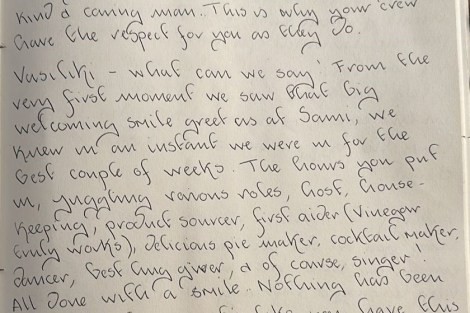 kind & caring man. This is why your crew
have the respect for you as they do.
Vasiliki - what can we say! From the
very first moment we saw that big
welcoming smile greet us at Sami, we
knew in an instant we were in for the
best couple of weeks. The hours you put
in, juggling various roles, host, house-
keeping, product sourcer, first aider (Vinegar
truly works), delicious pie maker, cocktail maker,
dancer, best hug giver, & of course, singer!
All done with a smile. Nothing has been
have this